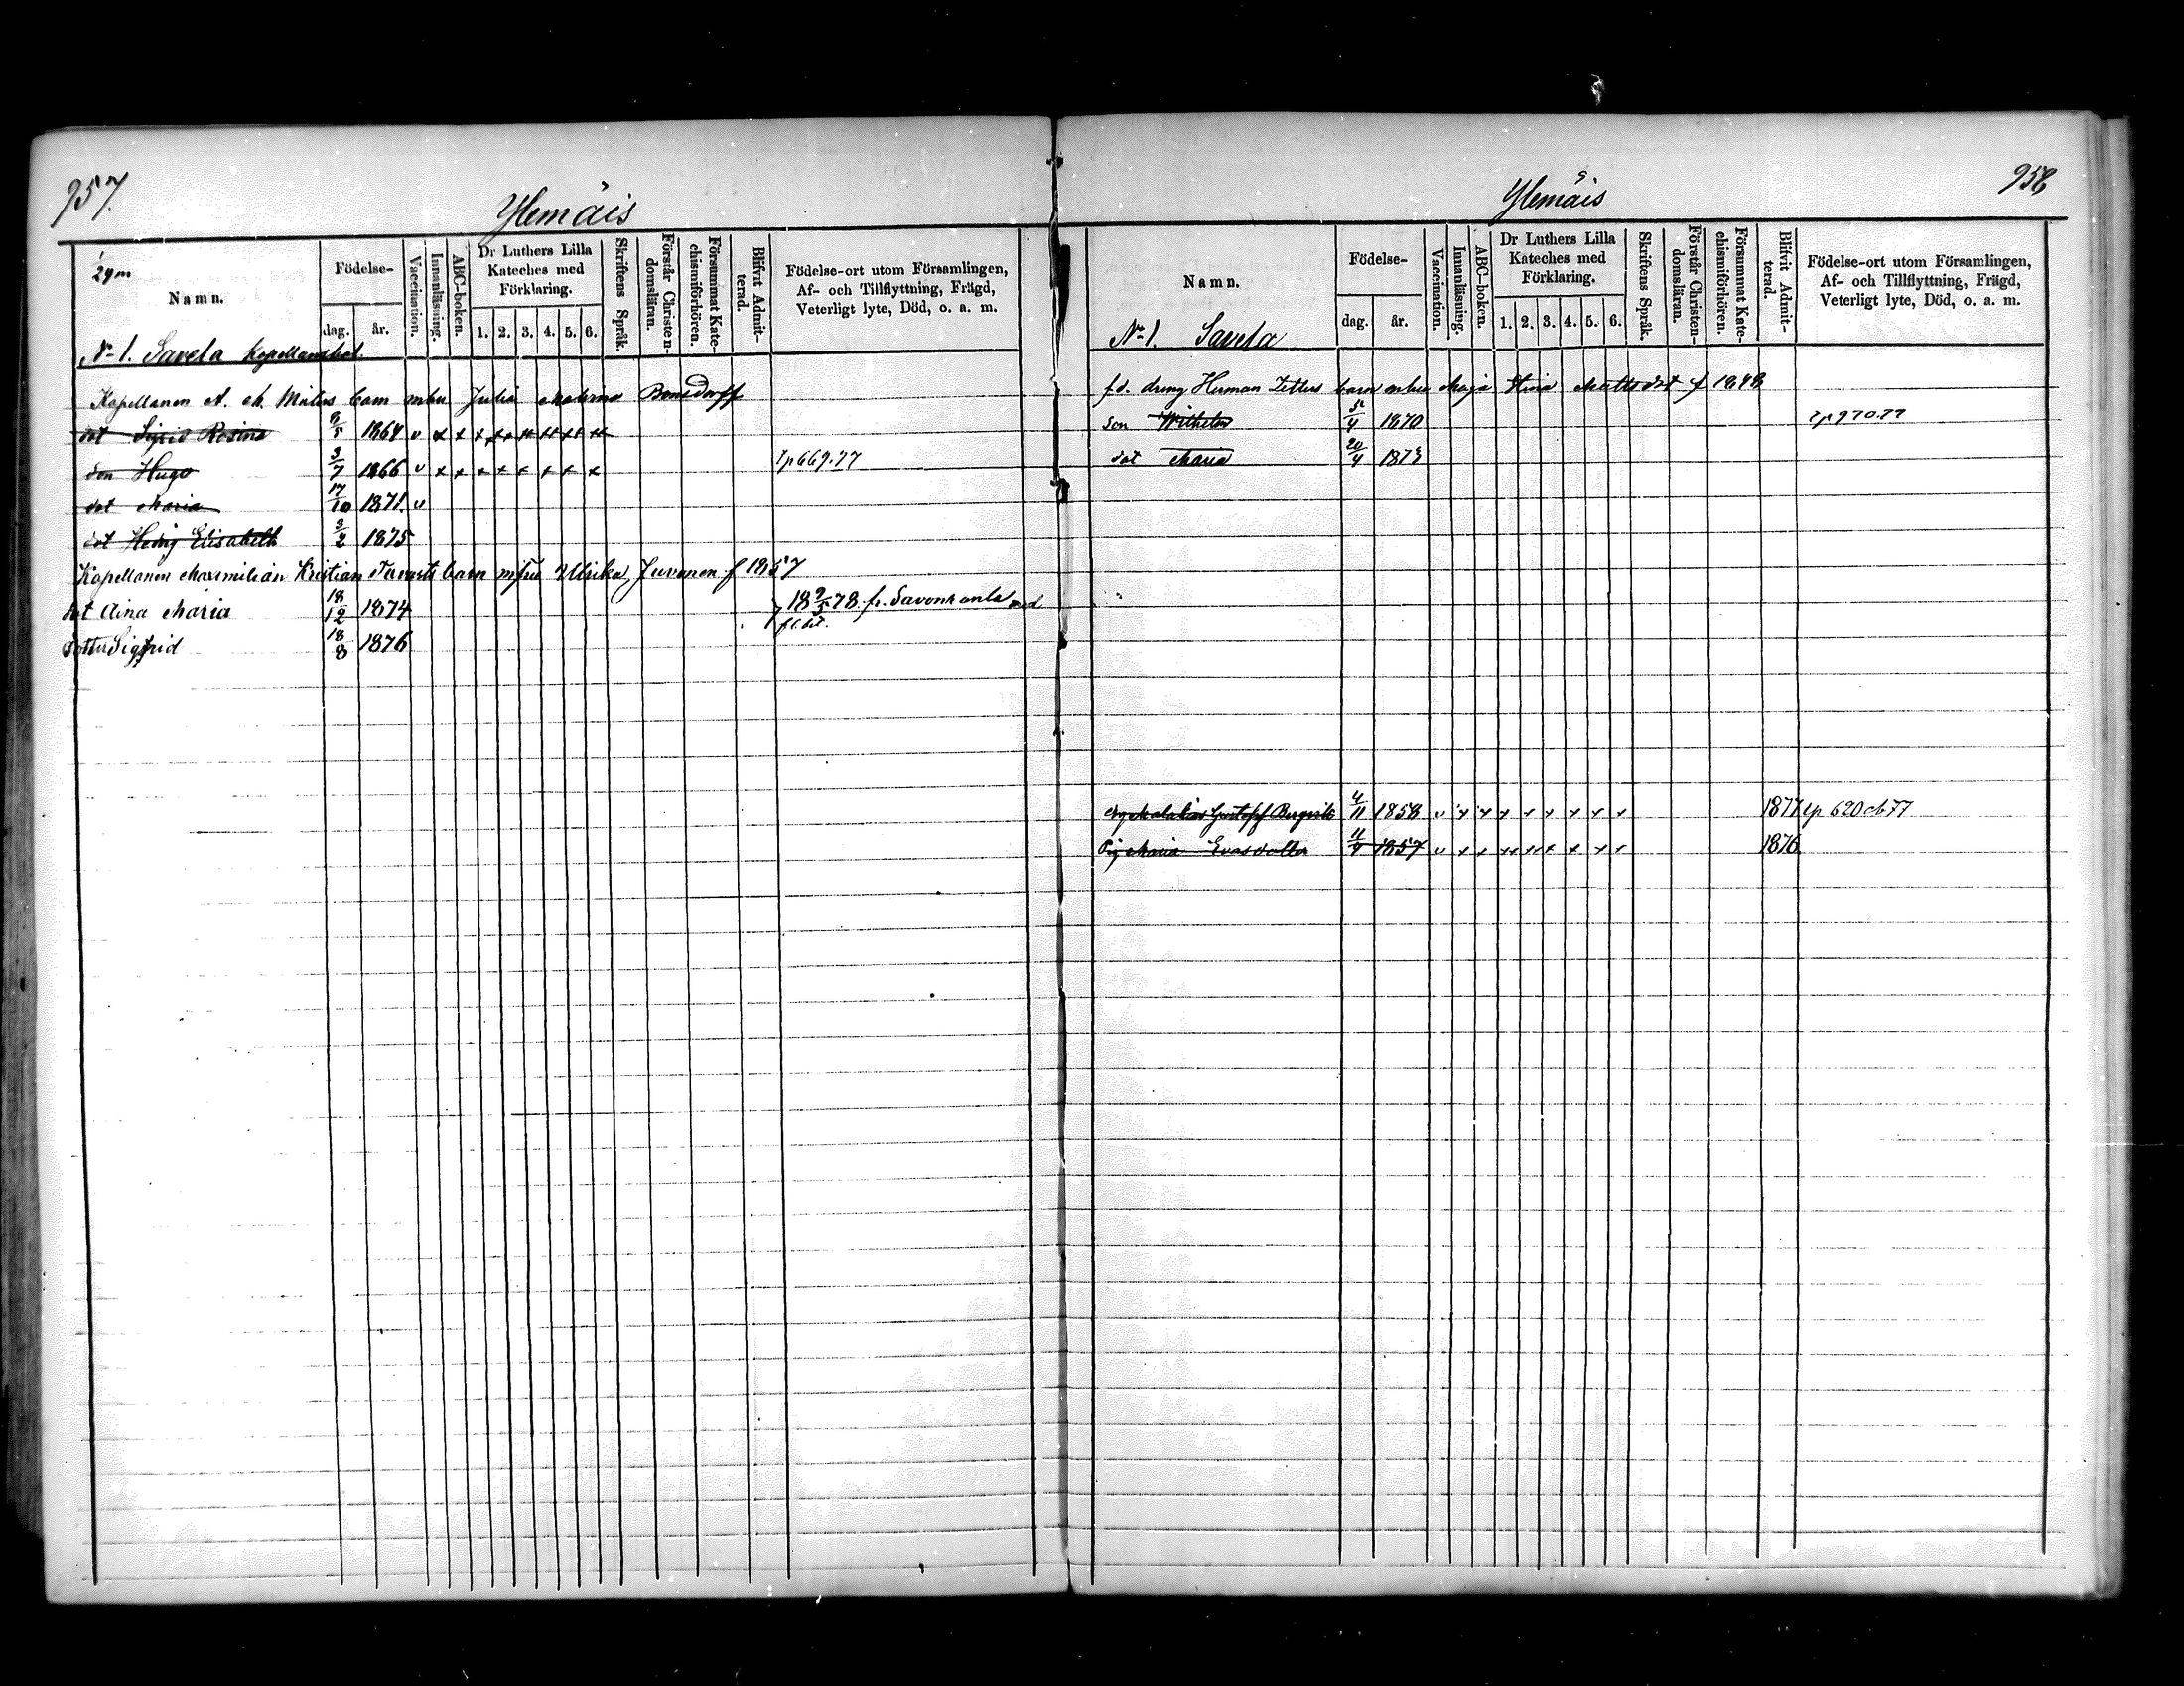 957.
Ylemäis
½ ym
Namn.
Födelse-
dag.
år.
Vaccination.
Innanläsning.
ABC-boken.
Dr Luthers Lilla
Kateches med
Förklaring.
1. 2. 3. 4. 5. 6.
Skriftens Språk.
Förstår Christen-
domsläran.
Försummat Kate-
chismiförhören.
Blifvit Admit-
terad.
Födelse-ort utom Församlingen,
Af- och Tillflyttning, Frägd,
Veterligt lyte, Död, o. a. m.
N-1. Savela Kapellansbol.
Kapellanen A. M. barn mhu Julia Malvina Bonsdorff
dot Sigrid Rosina 8/5 1864 v x x x x x x x x
son Hugo 3/7 1866 v x x x x x x x x rp 669.77
dot Maria 17/10 1871. v
dot Hedvig Elisabeth 3/2 1875
Kapellanen Maximilian Kristian barn m fru Ulrika Juvonen f 1857
dot Aina Maria 18/12 1874 18 9/5 78 fr. Savonranta med
Sigfrid 18/8 1876
958
Ylemäis
Namn.
Födelse-
dag.
år.
Vaccination.
Innanläsning.
ABC-boken.
Dr Luthers Lilla
Kateches med
Förklaring.
1. 2. 3. 4. 5. 6.
Skriftens Språk.
Förstår Christen-
domsläran.
Försummat Kate-
chismiförhören.
Blifvit Admit-
terad.
Födelse-ort utom Församlingen,
Af- och Tillflyttning, Frägd,
Veterligt lyte, Död, o. a. m.
N-1. Savela
f.d. dreng Herman barn enku Maja Stina Mattsdot f 1848
son Wilhelm 1870 rp 970.77
dot Maria 20/4 1873
Gustaf 4/11 1858 v x x x x x x x x 1877 rp 620 77
Pig Maria Evasdotter 11/4 1857 v x x x x x x x x 1876